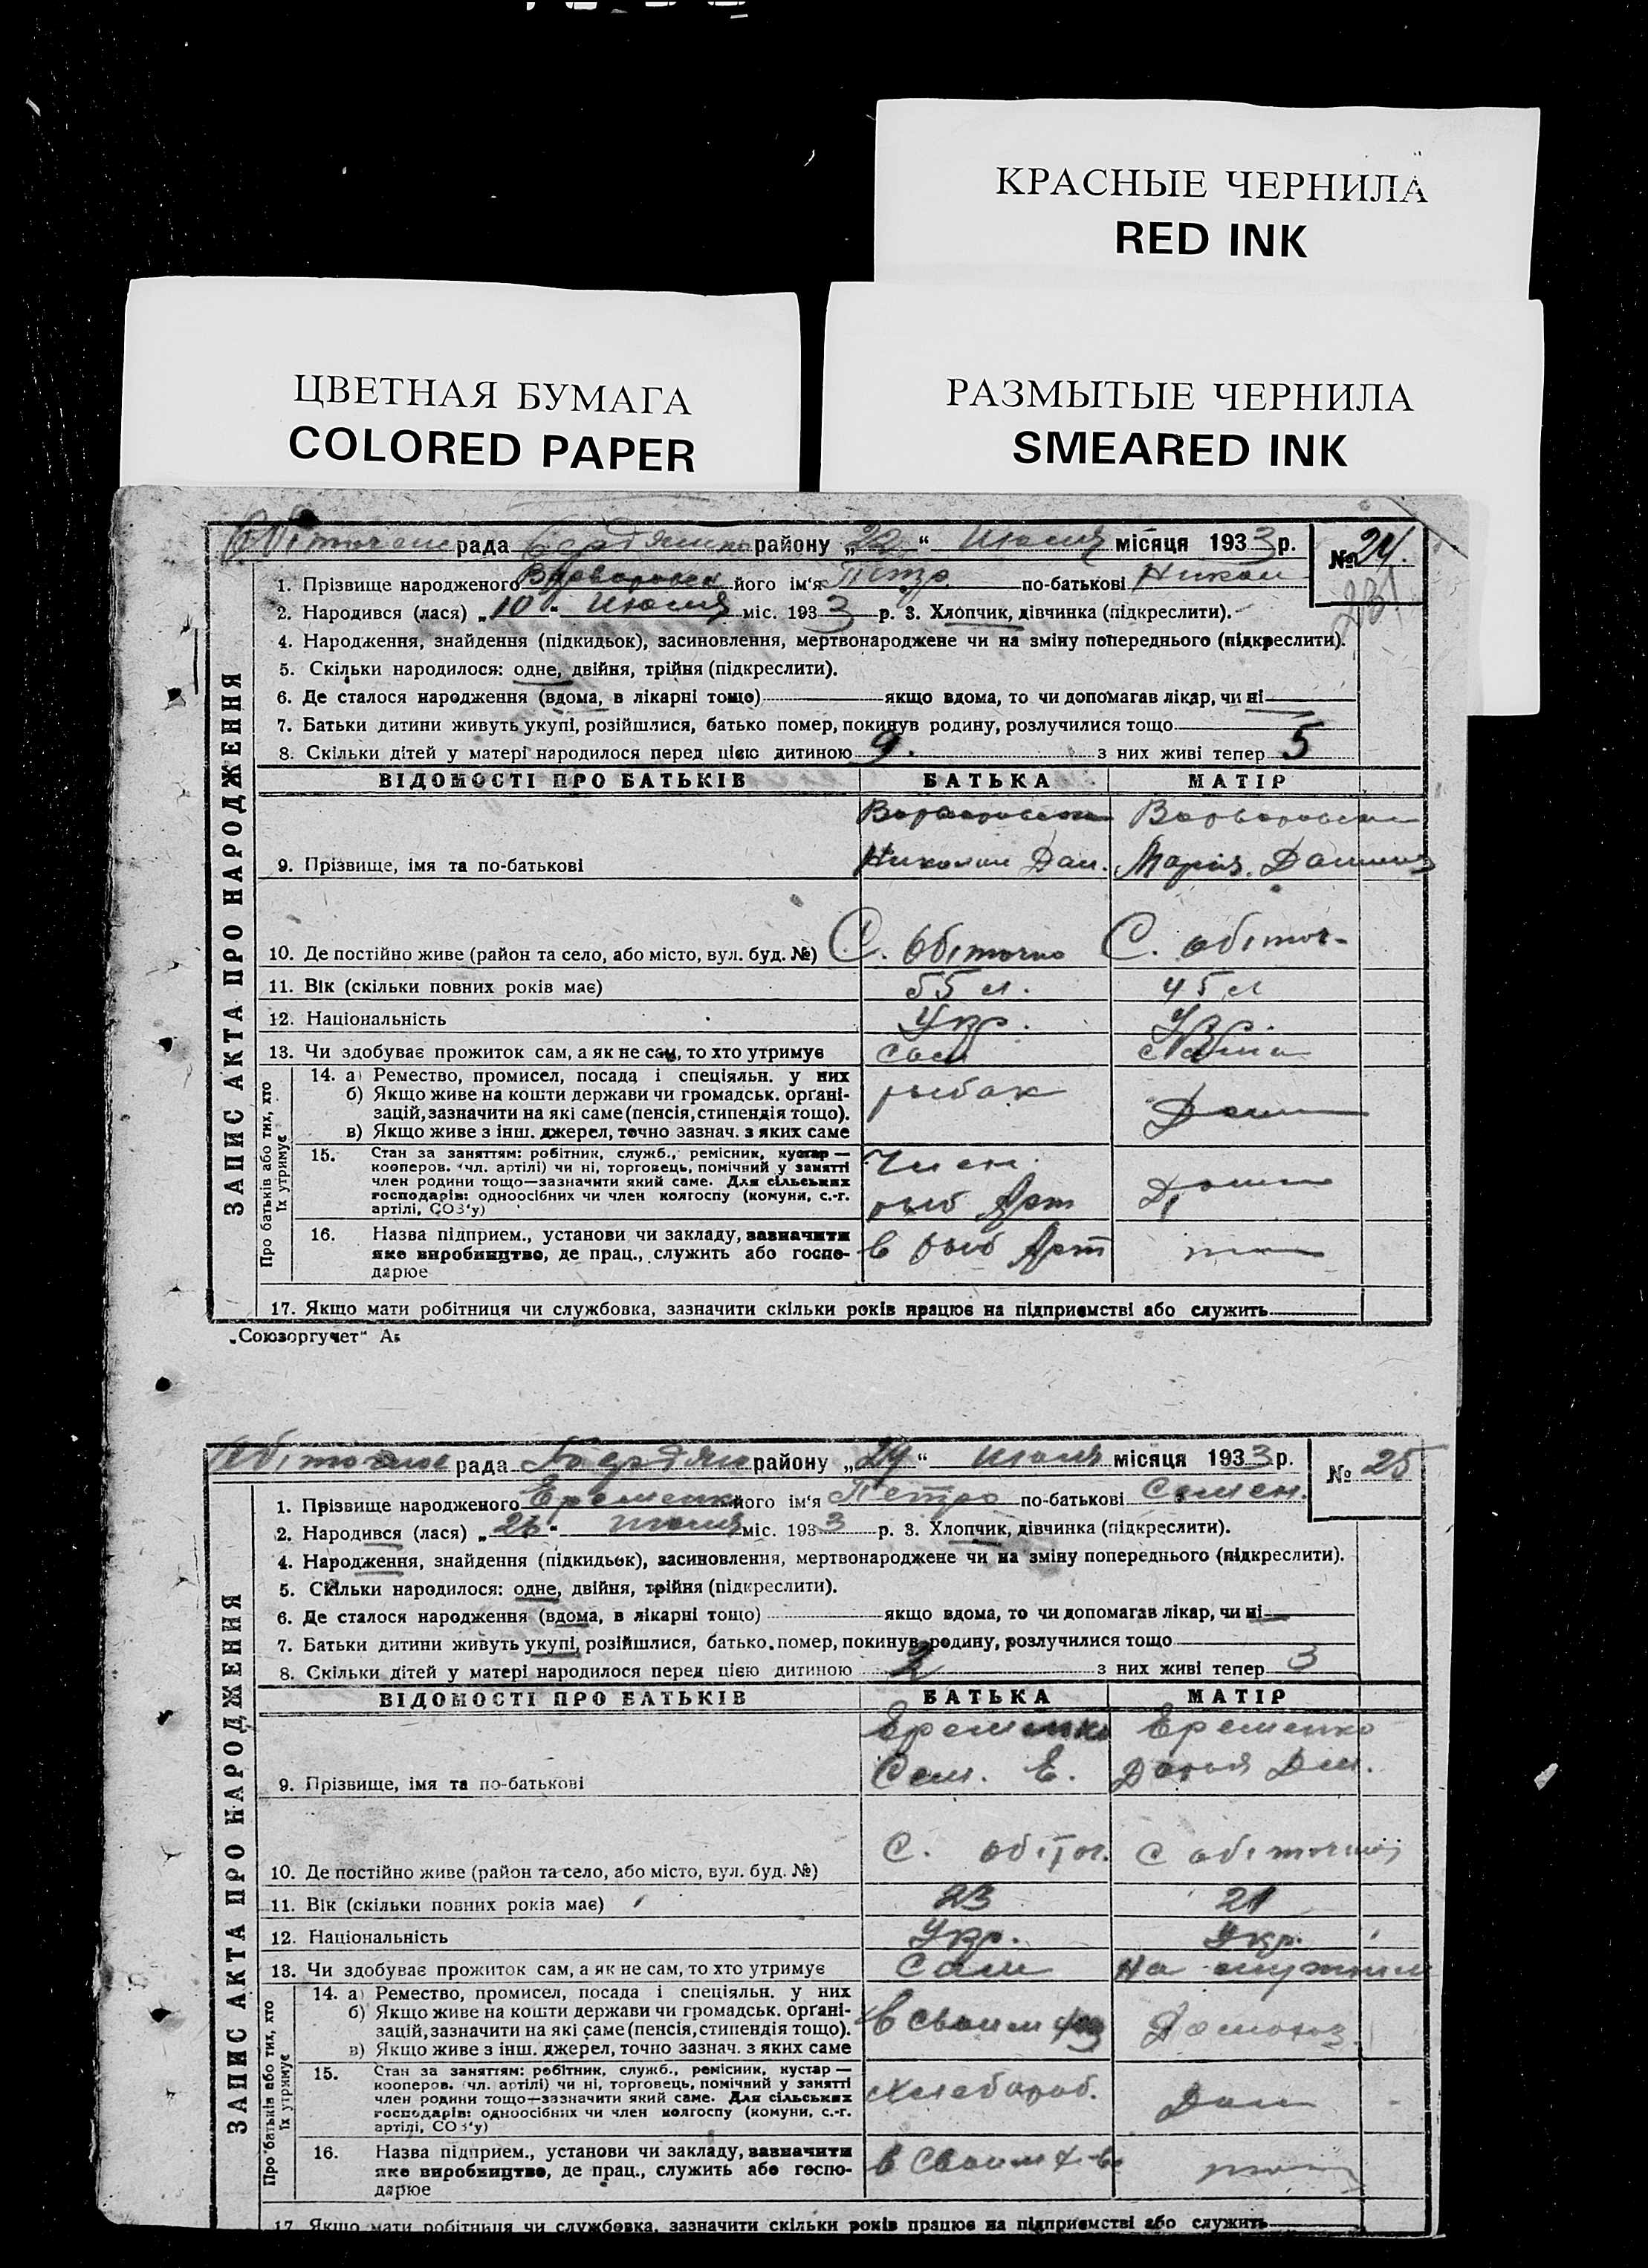 КРАСНЫЕ ЧЕРНИЛА
RED INK
ЦВЕТНАЯ БУМАГА
COLORED PAPER
РАЗМЫТЫЕ ЧЕРНИЛА
SMEARED INK
рада району „22“ Июля місяця 1933 р. № 24.
1. Прізвище народженого його ім'я Петр по-батькові Никол
2. Народився (лася) „10“ Июля міс. 1933 р. 3. Хлопчик, дівчинка (підкреслити).
4. Народження, знайдення (підкидьок), засиновлення, мертвонароджене чи на зміну попереднього (підкреслити).
5. Скільки народилося: одне, двійня, трійня (підкреслити).
6. Де сталося народження (вдома, в лікарні тощо) якщо вдома, то чи допомагав лікар, чи ні
7. Батьки дитини живуть укупі, розійшлися, батько помер, покинув родину, розлучилися тощо
8. Скільки дітей у матері народилося перед цією дитиною 9. з них живі тепер 5
ЗАПИС АКТА ПРО НАРОДЖЕННЯ
ВІДОМОСТІ ПРО БАТЬКІВ БАТЬКА МАТІР
9. Прізвище, імя та по-батькові Николай Дан. Мария
10. Де постійно живе (район та село, або місто, вул. буд. №) С. Обіточно С. Обіточ-
11. Вік (скільки повних років має) 55 л. 45 л
12. Національність Укр. Укр.
13. Чи здобуває прожиток сам, а як не сам, то хто утримує сам сама
Про батьків або тих, хто їх утримує
14. а) Ремество, промисел, посада і спеціяльн. у них рыбак
б) Якщо живе на кошти держави чи громадськ. орґані-
зацій, зазначити на які саме (пенсія, стипендія тощо).
в) Якщо живе з інш. джерел, точно зазнач. з яких саме
15. Стан за заняттям: робітник, служб., ремісник, кустар — Член
кооперов. (чл. артілі) чи ні, торговець, помічний у занятті
член родини тощо—зазначити який саме. Для сільських
господарів: одноосібних чи член колгоспу (комуни, с.-г. рыб Арт
артілі, СОЗ'у)
16. Назва підприєм., установи чи закладу, зазначити
яке виробництво, де прац., служить або госпо- в рыб Арт
дарює
17. Якщо мати робітниця чи службовка, зазначити скільки років працює на підприємстві або служить
„Союзоргучет“
рада району „29“ Июля місяця 1933 р. № 25
1. Прізвище народженого Еременко його ім'я Петро по-батькові Семен.
2. Народився (лася) міс. 1933 р. 3. Хлопчик, дівчинка (підкреслити).
4. Народження, знайдення (підкидьок), засиновлення, мертвонароджене чи на зміну попереднього (підкреслити).
5. Скільки народилося: одне, двійня, трійня (підкреслити).
6. Де сталося народження (вдома, в лікарні тощо) якщо вдома, то чи допомагав лікар, чи ні
7. Батьки дитини живуть укупі, розійшлися, батько помер, покинув родину, розлучилися тощо
8. Скільки дітей у матері народилося перед цією дитиною 2 з них живі тепер 3
ЗАПИС АКТА ПРО НАРОДЖЕННЯ
ВІДОМОСТІ ПРО БАТЬКІВ БАТЬКА МАТІР
Еременко Еременко
9. Прізвище, імя та по-батькові Сем. Е. Дарья Дм.
10. Де постійно живе (район та село, або місто, вул. буд. №) С. Обіточ. С
11. Вік (скільки повних років має) 23 21
12. Національність Укр. Укр.
13. Чи здобуває прожиток сам, а як не сам, то хто утримує Сам
Про батьків або тих, хто їх утримує
14. а) Ремество, промисел, посада і спеціяльн. у них
б) Якщо живе на кошти держави чи громадськ. орґані- в своим хоз Домохоз.
зацій, зазначити на які саме (пенсія, стипендія тощо).
в) Якщо живе з інш. джерел, точно зазнач. з яких саме
15. Стан за заняттям: робітник, служб., ремісник, кустар —
кооперов. (чл. артілі) чи ні, торговець, помічний у занятті хлебороб.
член родини тощо—зазначити який саме. Для сільських
господарів: одноосібних чи член колгоспу (комуни, с.-г.
артілі, СОЗ'у)
16. Назва підприєм., установи чи закладу, зазначити в своим х-ве
яке виробництво, де прац., служить або госпо-
дарює
17. Якщо мати робітниця чи службовка, зазначити скільки років працює на підприємстві або служить